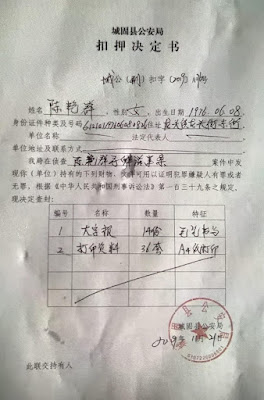 城固县公安局
扣押决定书
城公（刑）扣字〔2019〕 号
姓名 陈艳 ，性别 女，出生日期 1976.06.08，
身份证件种类及号码 住址
单位名称 法定代表人
单位地址及联系方式
我局在侦查 陈艳 案 案件中发
现你（单位）持有的下列财物、文件可用以证明犯罪嫌疑人有罪或者
无罪，根据《中华人民共和国刑事诉讼法》第一百三十九条之规定，
现决定查封：
编号 名称 数量 特征
1 大字报 14份
2 打印资料 36套 A4纸打印
城固县公安局
2019年11月21日
此联交持有人